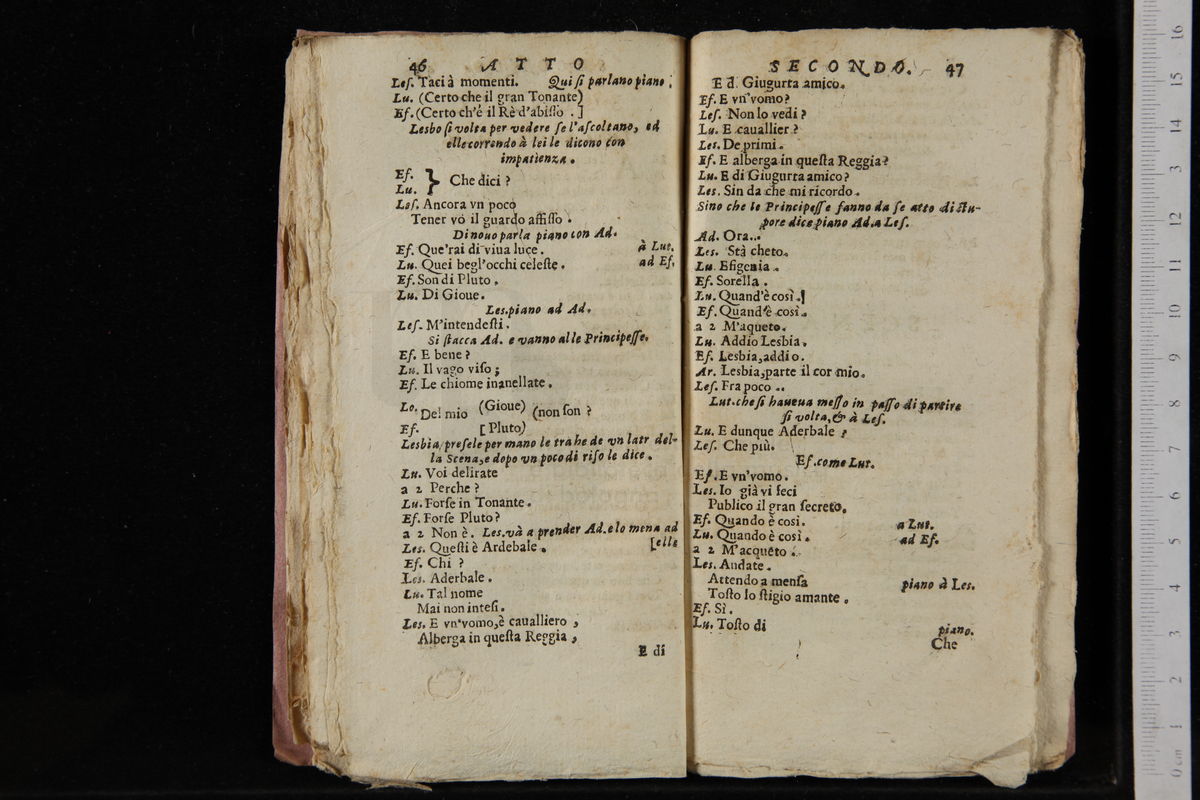 46 ATTO
Leſ. Taci à momenti. Qui ſi parlano piano.
Lu. (Certo che il gran Tonante)
Eſ. (Certo ch'è il Rè d'abiſſo .]
Lesbo ſi volta per vedere ſe l'aſcoltano, ed
elle correndo à lei le dicono con
impatienza.
Eſ.
Lu. } Che dici ?
Leſ. Ancora vn poco
Tener vò il guardo affiſſo .
Di nouo parla piano con Ad.
Eſ. Que'rai di viua luce. à Lut.
Lu. Quei begl'occhi celeſte. ad Eſ.
Eſ. Son di Pluto.
Lu. Di Gioue.
Les. piano ad Ad.
Leſ. M'intendeſti.
Si ſtacca Ad. e vanno alle Principeſſe.
Eſ. E bene ?
Lu. Il vago viſo ;
Eſ. Le chiome inanellate.
Lo. Del mio (Gioue) (non ſon ?
Eſ. [Pluto)
Lesbia, preſele per mano le trahe de vn latr del-
la Scena, e dopo vn poco di riſo le dice.
Lu. Voi delirate
a 2 Perche ?
Lu. Forſe in Tonante.
Eſ. Forſe Pluto ?
a 2 Non è. Les. và a prender Ad. e lo mena ad
Les. Queſti è Ardebale. [elle
Eſ. Chi ?
Les. Aderbale.
Lu. Tal nome
Mai non inteſi.
Les. E vn'vomo, è caualliero ,
Alberga in queſta Reggia ,
E di
SECONDO. 47
E d. Giugurta amico.
Eſ. E vn'vomo ?
Leſ. Non lo vedi ?
Lu. E cauallier ?
Les. De primi.
Eſ. E alberga in queſta Reggia ?
Lu. E di Giugurta amico ?
Les. Sin da che mi ricordo.
Sino che le Principeſſe fanno da ſe atto di ſtu-
pore dice piano Ad. a Leſ.
Ad. Ora...
Les. Stà cheto.
Lu. Efigenia.
Eſ. Sorella.
Lu. Quand'è così.
Eſ. Quand'è così.
a 2 M'aqueto.
Lu. Addio Lesbia.
Eſ. Lesbia, addio.
Ar. Lesbia, parte il cor mio.
Leſ. Fra poco ..
Lut. che ſi haueua meſſo in paſſo di partire
ſi volta, & à Leſ.
Lu. E dunque Aderbale ?
Leſ. Che più.
Eſ. come Lut.
Eſ. E vn'vomo.
Les. Io già vi feci
Publico il gran ſecreto.
Eſ. Quando è cosi. a Lut.
Lu. Quando è così. ad Eſ.
a 2 M'acqueto .
Les. Andate.
Attendo a menſa piano à Les.
Toſto lo ſtigio amante.
Eſ. Sì.
Lu. Toſto di piano.
Che